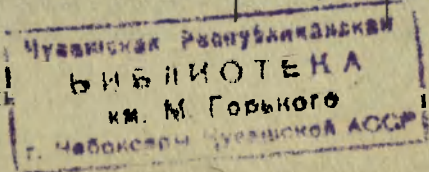 Чувашская Республиканская
БИБЛИОТЕКА
им. М. Горького
г. Чебоксары Чувашской АССР